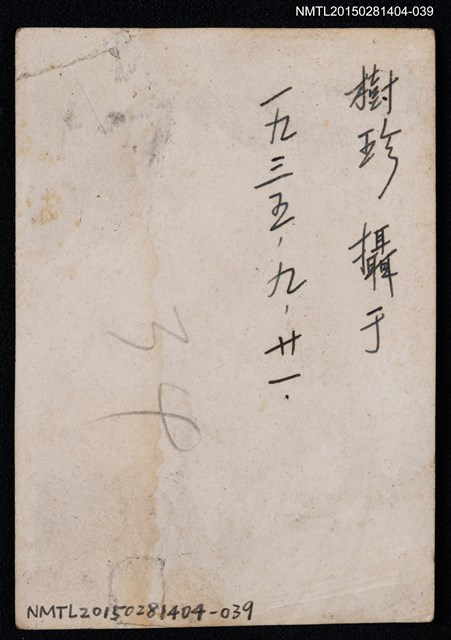 NMTL20150281404-039
樹珍攝于
一九三五、九、廿一.
34
NMTL20150281404-039